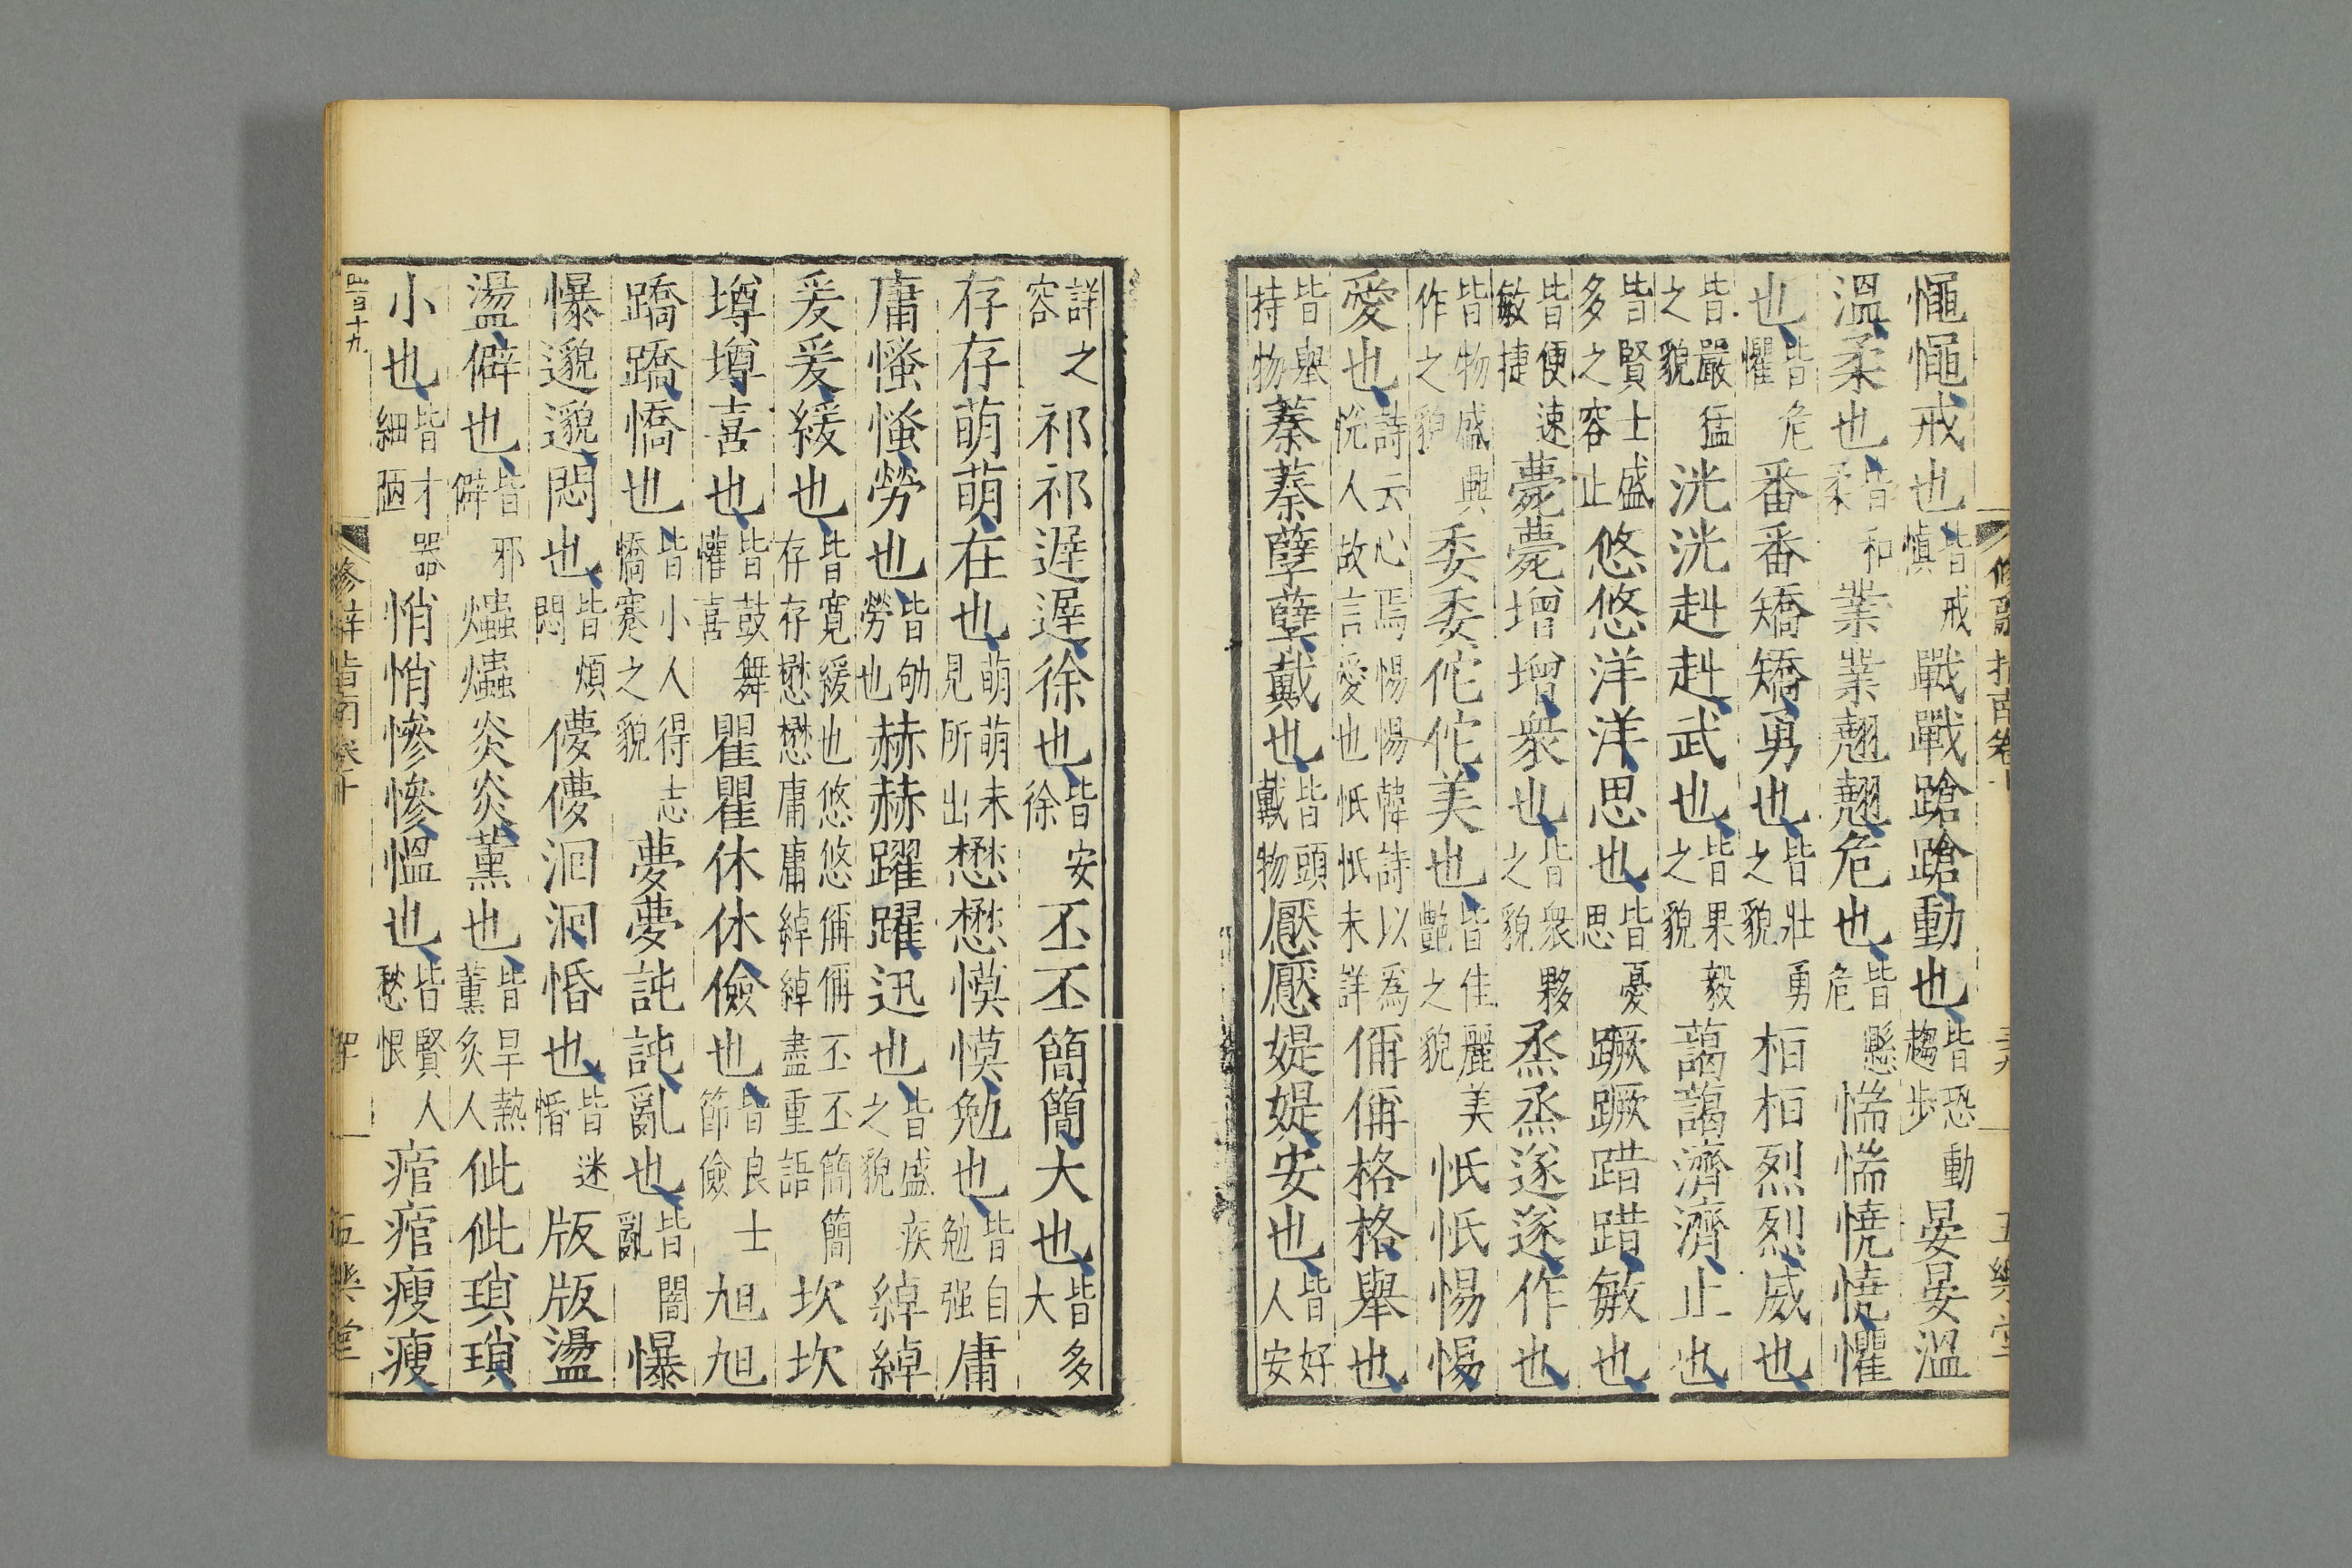 憴憴戒也皆戒慎戰戰蹌蹌動也皆恐動趨步晏晏溫
溫柔也皆和柔業業翹翹危也皆懸危惴惴憢憢懼
也皆危懼番番矯矯勇也皆壯勇之貌桓桓烈烈威也
皆嚴猛之貌洸洸赳赳武也皆果毅之貌藹藹濟濟止也
皆賢士盛多之容止悠悠洋洋思也皆憂思蹶蹶踖踖敏也
皆便速敏捷薨薨增增衆也皆衆夥之貌烝烝遂遂作也
皆物盛興作之貌委委佗佗美也皆佳麗美艷之貌忯忯惕惕
愛也詩云心焉惕惕韓詩以爲悅人故言愛也忯忯未詳偁偁格格舉也
皆舉持物蓁蓁孽孽戴也皆頭戴物懕懕媞媞安也皆好人安
詳之容祁祁遲遲徐也皆安徐丕丕簡簡大也皆多大
存存萌萌在也萌萌未見所出懋懋慔慔勉也皆自勉强庸
庸慅慅勞也皆劬勞也赫赫躍躍迅也皆盛疾之貌綽綽
爰爰緩也皆寬緩也悠悠偁偁丕丕簡簡存存懋懋庸庸綽綽盡重語坎坎
墫墫喜也皆鼓舞懽喜瞿瞿休休儉也皆良士節儉旭旭
蹻蹻憍也皆小人得志憍蹇之貌夢夢訰訰亂也皆闇亂懪
懪邈邈悶也皆煩悶儚儚洄洄惛也皆迷惛版版盪
盪僻也皆邪僻爞爞炎炎薰也皆旱熱薰炙人佌佌瑣瑣
小也皆才器細陋悄悄慘慘慍也皆賢人愁恨痯痯瘐瘐